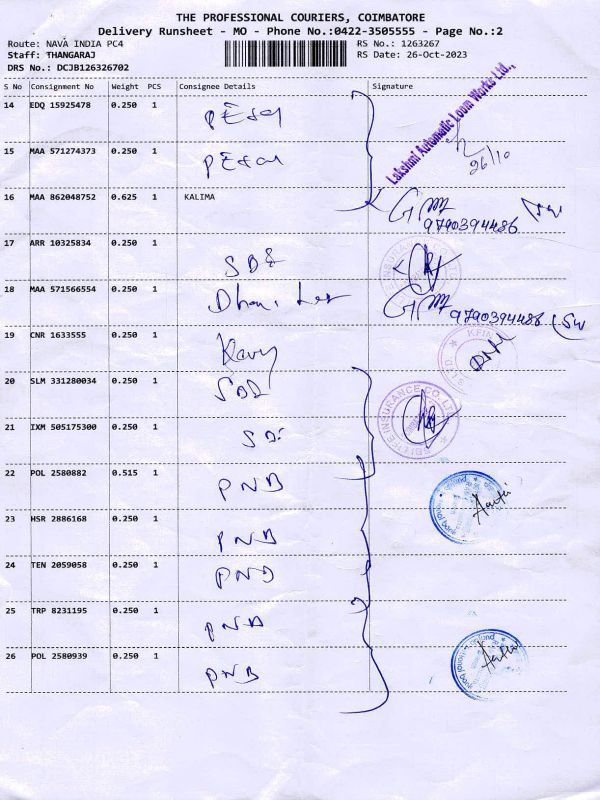 THE PROFESSIONAL COURIERS, COIMBATORE
Delivery Runsheet - MO - Phone No.:0422-3505555 - Page No.:2
Route: NAVA INDIA PC4
RS No.: 1263267
Staff: THANGARAJ
RS Date: 26-Oct-2023
DRS No.: DCJB126326702
S No Consignment No Weight PCS Consignee Details Signature
14 EDQ 15925478 0.250 1
Lakshmi Automatic Loom Works Ltd.,
26/10
15 MAA 571274373 0.250 1
16 MAA 862048752 0.625 1 KALIMA
9790394486
17 ARR 10325834 0.250 1 SBI
18 MAA 571566554 0.250 1
9790394486
19 CNR 1633555 0.250 1
KFIN
20 SLM 331280034 0.250 1 SBI
SBI LIFE INSURANCE CO. LTD
21 IXM 505175300 0.250 1 SBI
22 POL 2580882 0.515 1 PNB
23 HSR 2886168 0.250 1 PNB
24 TEN 2059058 0.250 1 PNB
25 TRP 8231195 0.250 1 PNB
26 POL 2580939 0.250 1 PNB